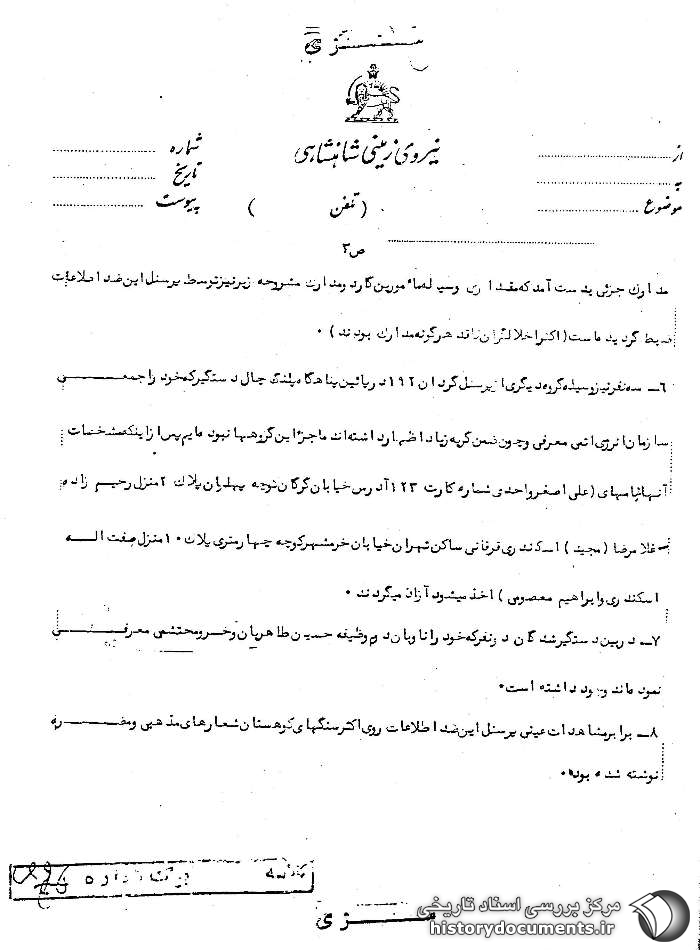 سری
نیروی زمینی شاهنشاهی
از
شماره
به
تاریخ
موضوع
( تلفن )
پیوست
ص ۲
مدارك جزئی بدست آمد که مقداری وسیله مامورین گارد و مدارك مشروحه زیر نیز توسط پرسنل این ضد اطلاعات
ضبط گردیده است ( اکثر اخلالگران فاقد هرگونه مدارك بودند ) ۰
۶ـ سه نفر نیز وسیله گروه دیگری از پرسنل گردان ۱۹۲ در پائین پناهگاه پلنگ چال دستگیر که خود را جمعی
سازمان انرژی اتمی معرفی و چون ضمن گریه زیاد اظهار داشته اند ما جزء این گروهها نبوده ایم پس از اینکه مشخصات
آنها بنامهای ( علی اصغر واحدی شماره کارت ۱۲۳ آدرس خیابان گرگان کوچه پلاك ۲ منزل رحیم زاده
غلامرضا ( مجید ) اسکندری قرقانی ساکن تهران خیابان خرمشهر کوچه چهار متری پلاك ۱۰ منزل صفت اله
اسکندری و ابراهیم معصومی ) اخذ میشود آزاد میگردند ۰
۷ـ در بین دستگیرشدگان دو نفر که خود را ناوبان دوم وظیفه حسین طاهریان و خسرو محتشمی معرفی
نموده اند وجود داشته است ۰
۸ـ برابر مشاهدات عینی پرسنل این ضد اطلاعات روی اکثر سنگهای کوهستان شعارهای مذهبی و مضره
نوشته شده بود ۰
سری
مرکز بررسی اسناد تاریخی
historydocuments.ir